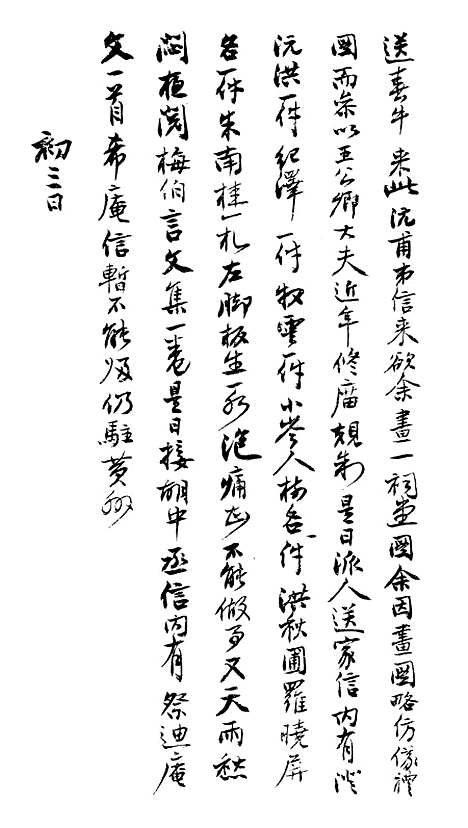 送春牛来此沅甫弟信来欲余畫一祠堂圖余因畫圖略仿儀禮
圖而参以王公卿大夫近年修廟規制是日派人送家信内有澄
沅洪一件紀澤一件牧雲一件小岑人樹各一件洪秋圃羅曉屏
各一件朱南桂一札左脚板生一形泡痛甚不能做事又天雨愁
悶極閲梅伯言文集一卷是日接胡中丞信内有祭迪庵
文一首希庵信暫不能歸仍駐黄州
初三日